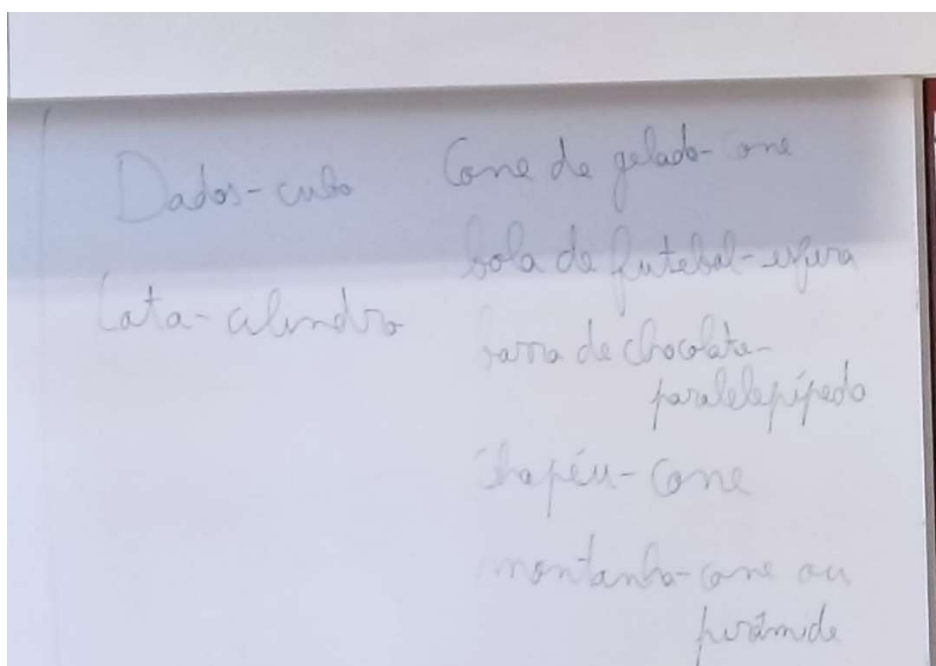 Dados - cubo
Lata - cilindro
Cone de gelado - cone
bola de futebol - esfera
barra de chocolate -
paralelepípedo
chapéu - cone
montanha - cone ou
pirâmide